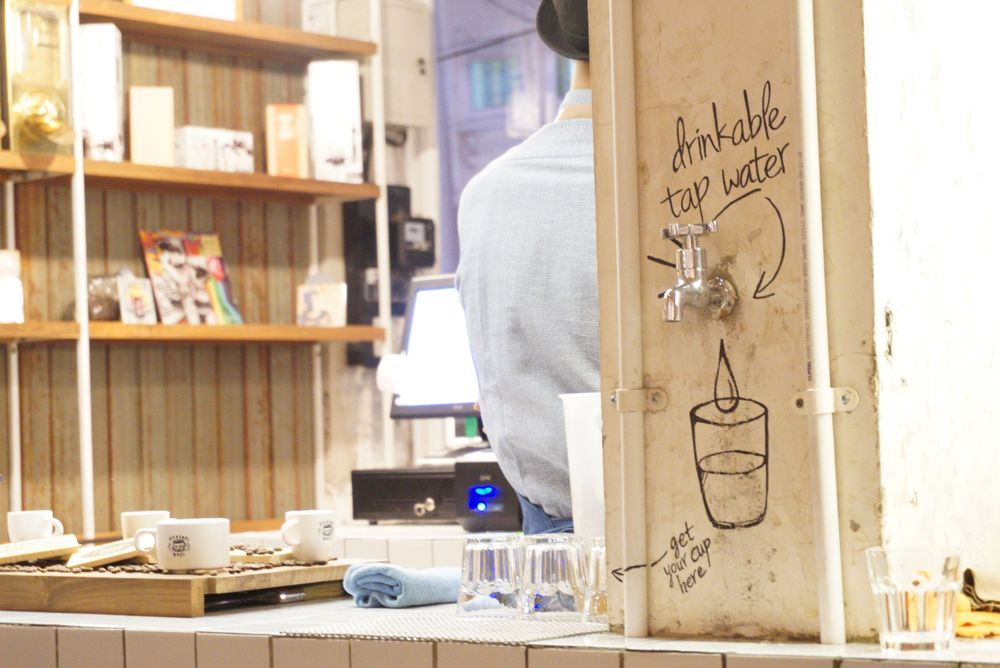 drinkable
tap water
get
your cup
here